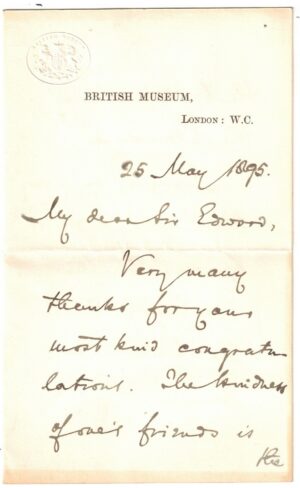 BRITISH MUSEUM,
LONDON: W.C.
25 May 1895.
My dear Sir Edward,
Very many
thanks for your
most kind congratu
lations. The kindness
of one's friends is
the